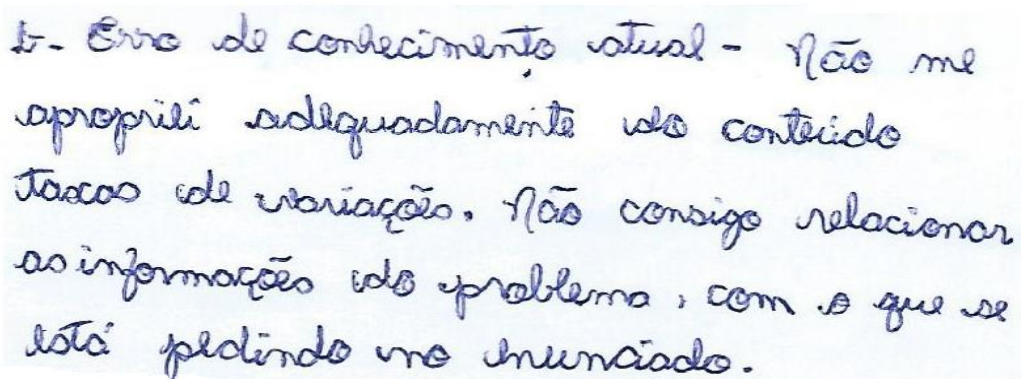 b- Erro de conhecimento atual - Não me
apropriei adequadamente do conteúdo
taxas de variações. Não consigo relacionar
as informações do problema, com o que se
está pedindo no enunciado.